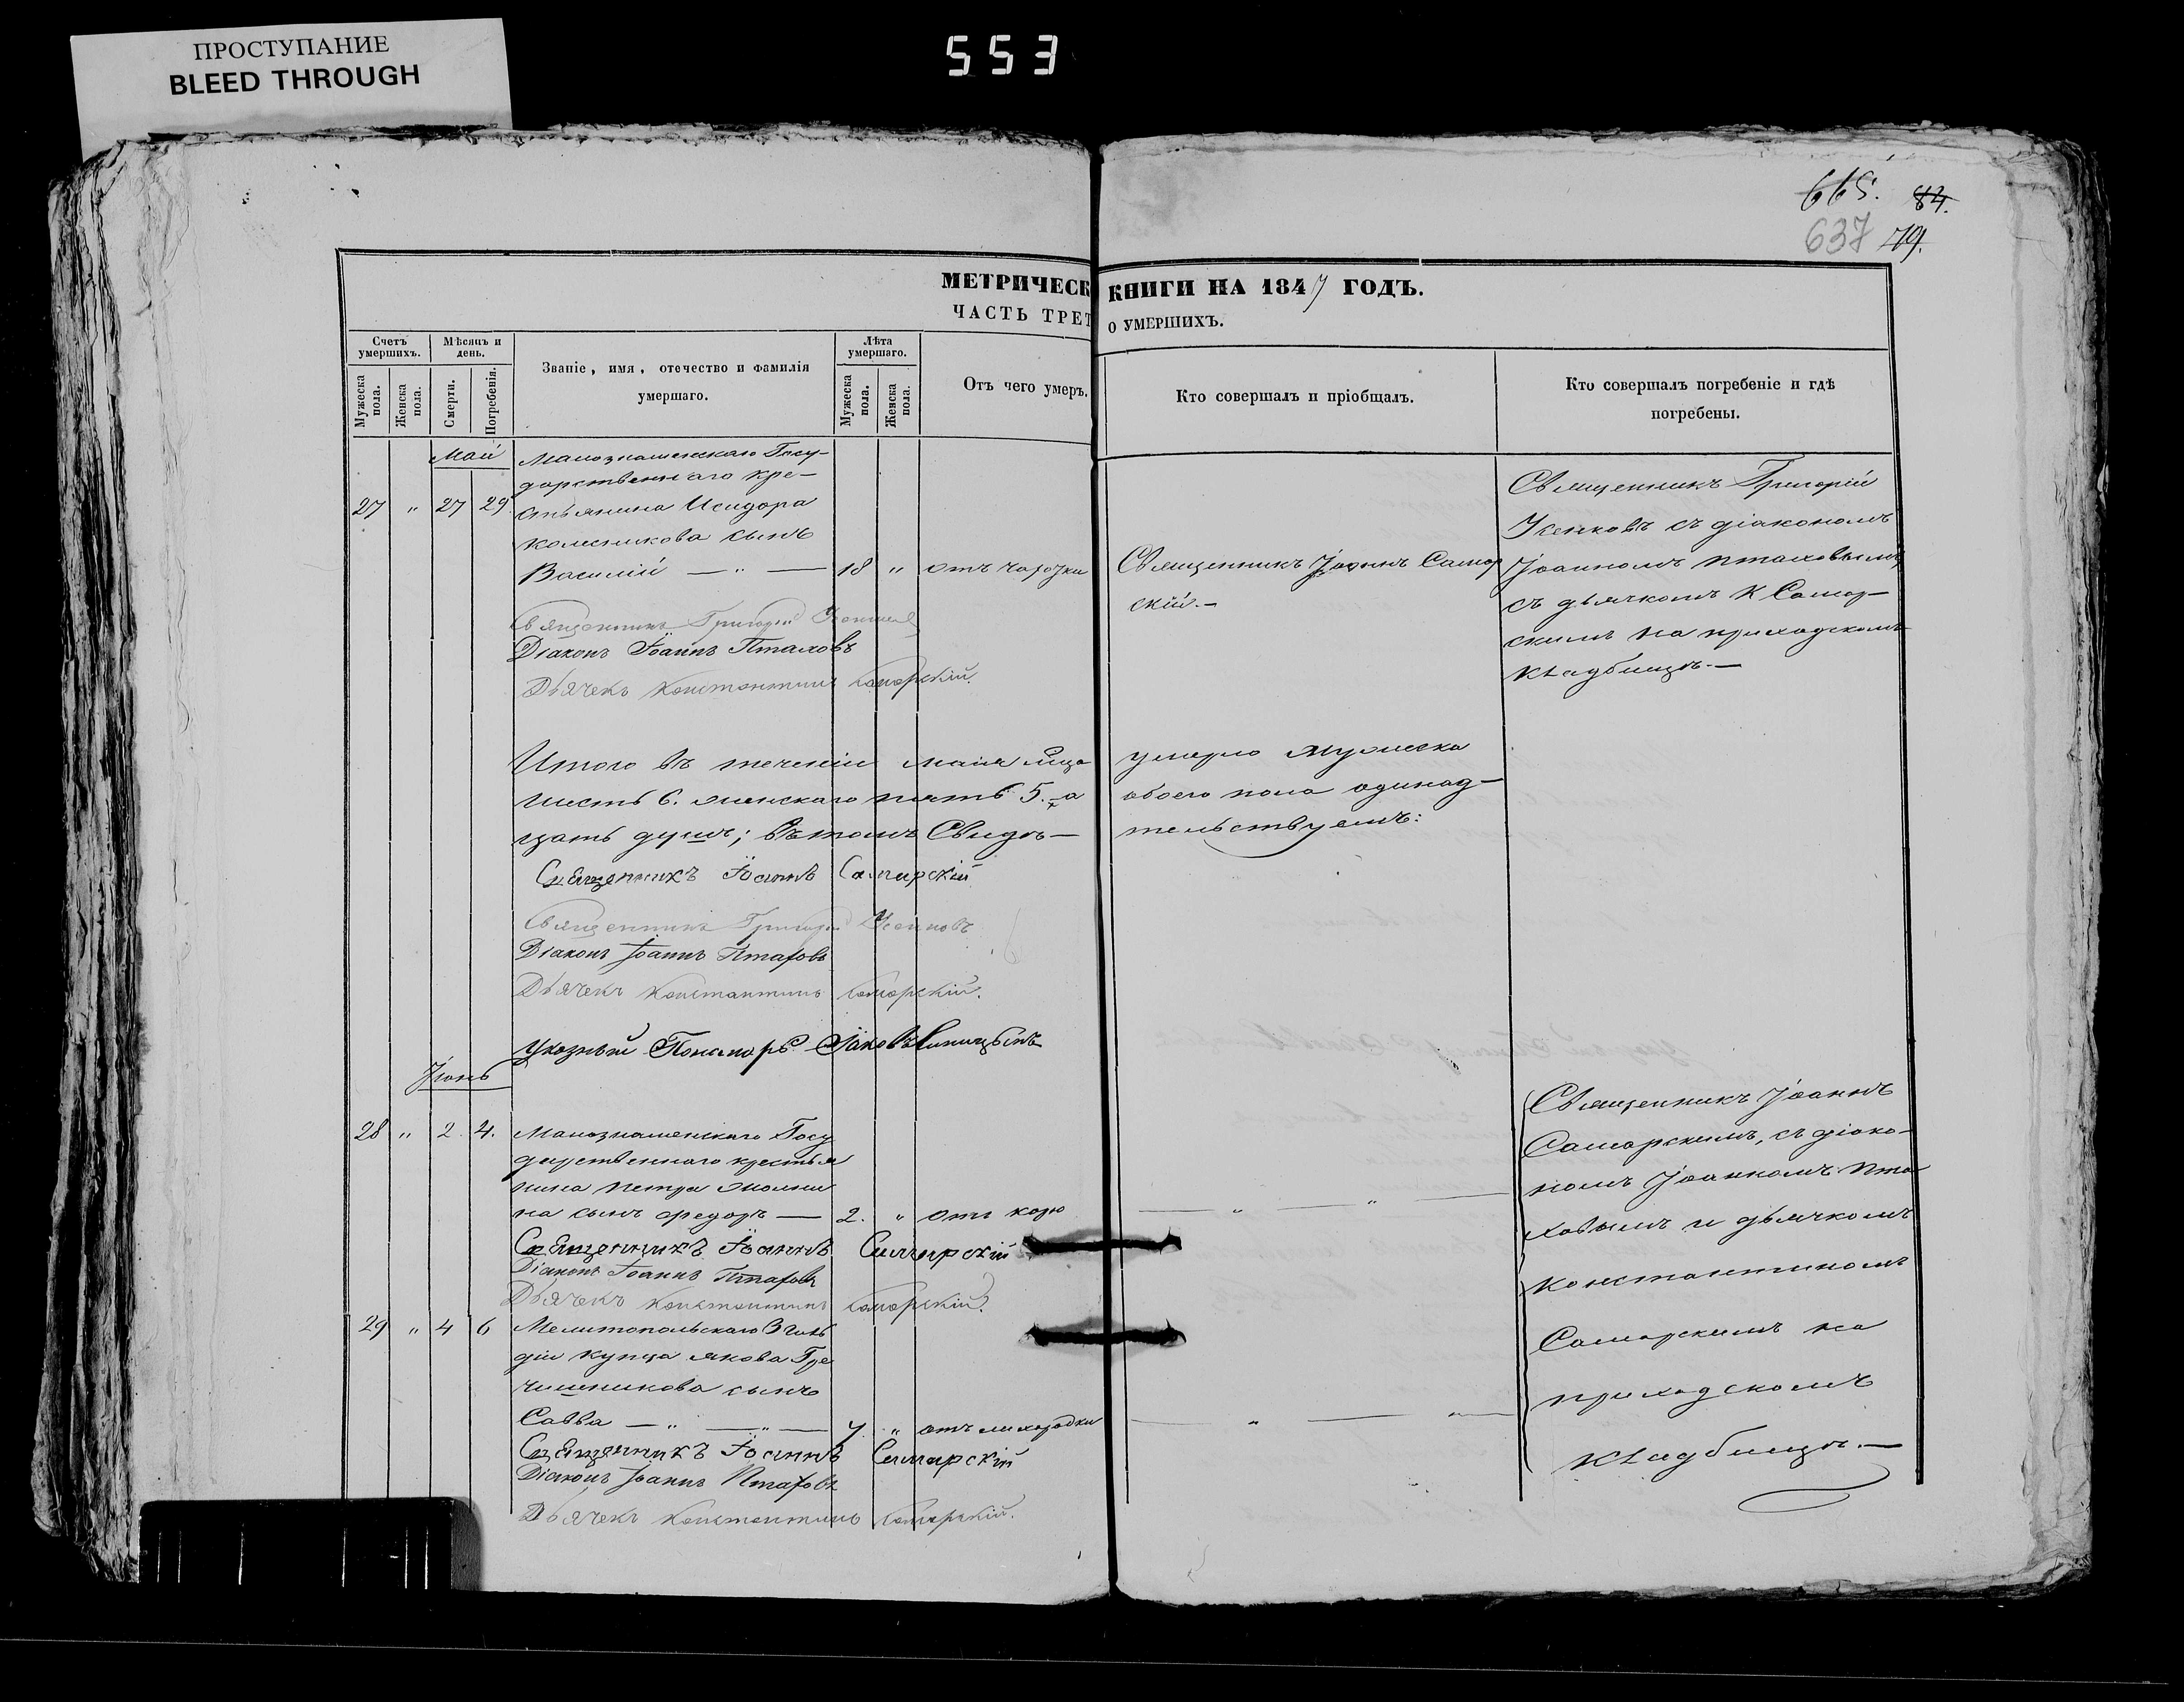 ПРОСТУПАНИЕ
BLEED THROUGH
553
665. 84.
637 79.
МЕТРИЧЕСК КНИГИ НА 1847 ГОДЪ.
ЧАСТЬ ТРЕТ О УМЕРШИХЪ.
Счетъ умершихъ.
Мужеска пола.
Женска пола.
Мѣсяцъ и день.
Смерти.
Погребенія.
Званіе, имя, отечество и фамилія
умершаго.
Лѣта умершаго.
Мужеска пола.
Женска пола.
Отъ чего умеръ.
Кто совершалъ и пріобщалъ.
Кто совершалъ погребеніе и гдѣ
погребены.
Май
27 " 27 29
Малознаменскаго Госу-
дарственнаго кре-
стьянина Исидора
Колесникова сынъ
Василій — " — 18 " отъ
Священникъ Іоаннъ Самар
скій. —
Священникъ Григорій
Усенковъ съ діакономъ
Іоанномъ Птаховымъ
съ дьячкомъ К Самар-
скимъ на приходскомъ
кладбищѣ. —
Священникъ Григорій
Діаконъ Іоаннъ Птаховъ
Дьячекъ Константинъ Самарскій.
Итого въ теченіи маія мца умерло мужеска
шесть 6. женскаго пять 5. а обоего пола одинад-
цать душъ; въ томъ Свидѣ- тельствуемъ:
Священникъ Іоаннъ Самарскій
Священникъ Григорій Усенковъ
Діаконъ Іоаннъ Птаховъ
Дьячекъ Константинъ Самарскій.
Указный Пономарь Іаковъ
Іюнь
28 " 2. 4.
Малознаменскаго Госу
дарственнаго крестья
нина Петра
на сынъ Федоръ — 2. " отъ корю — " — " —
Священникъ Іоаннъ Самарскій
Діаконъ Іоаннъ Птаховъ
Дьячекъ Константинъ Самарскій.
29 " 4 6
Мелитопольскаго 3 гиль
діи купца Якова Гре
чишникова сынъ
Савва — " — " — 7. " отъ лихорадки — " — " —
Священникъ Іоаннъ Самарскій
Діаконъ Іоаннъ Птаховъ
Дьячекъ Константинъ Самарскій.
Священникъ Іоаннъ
Самарскимъ, съ діако-
номъ Іоанномъ Пта
ховымъ и дьячкомъ
Константиномъ
Самарскимъ на
приходскомъ
кладбищѣ. —